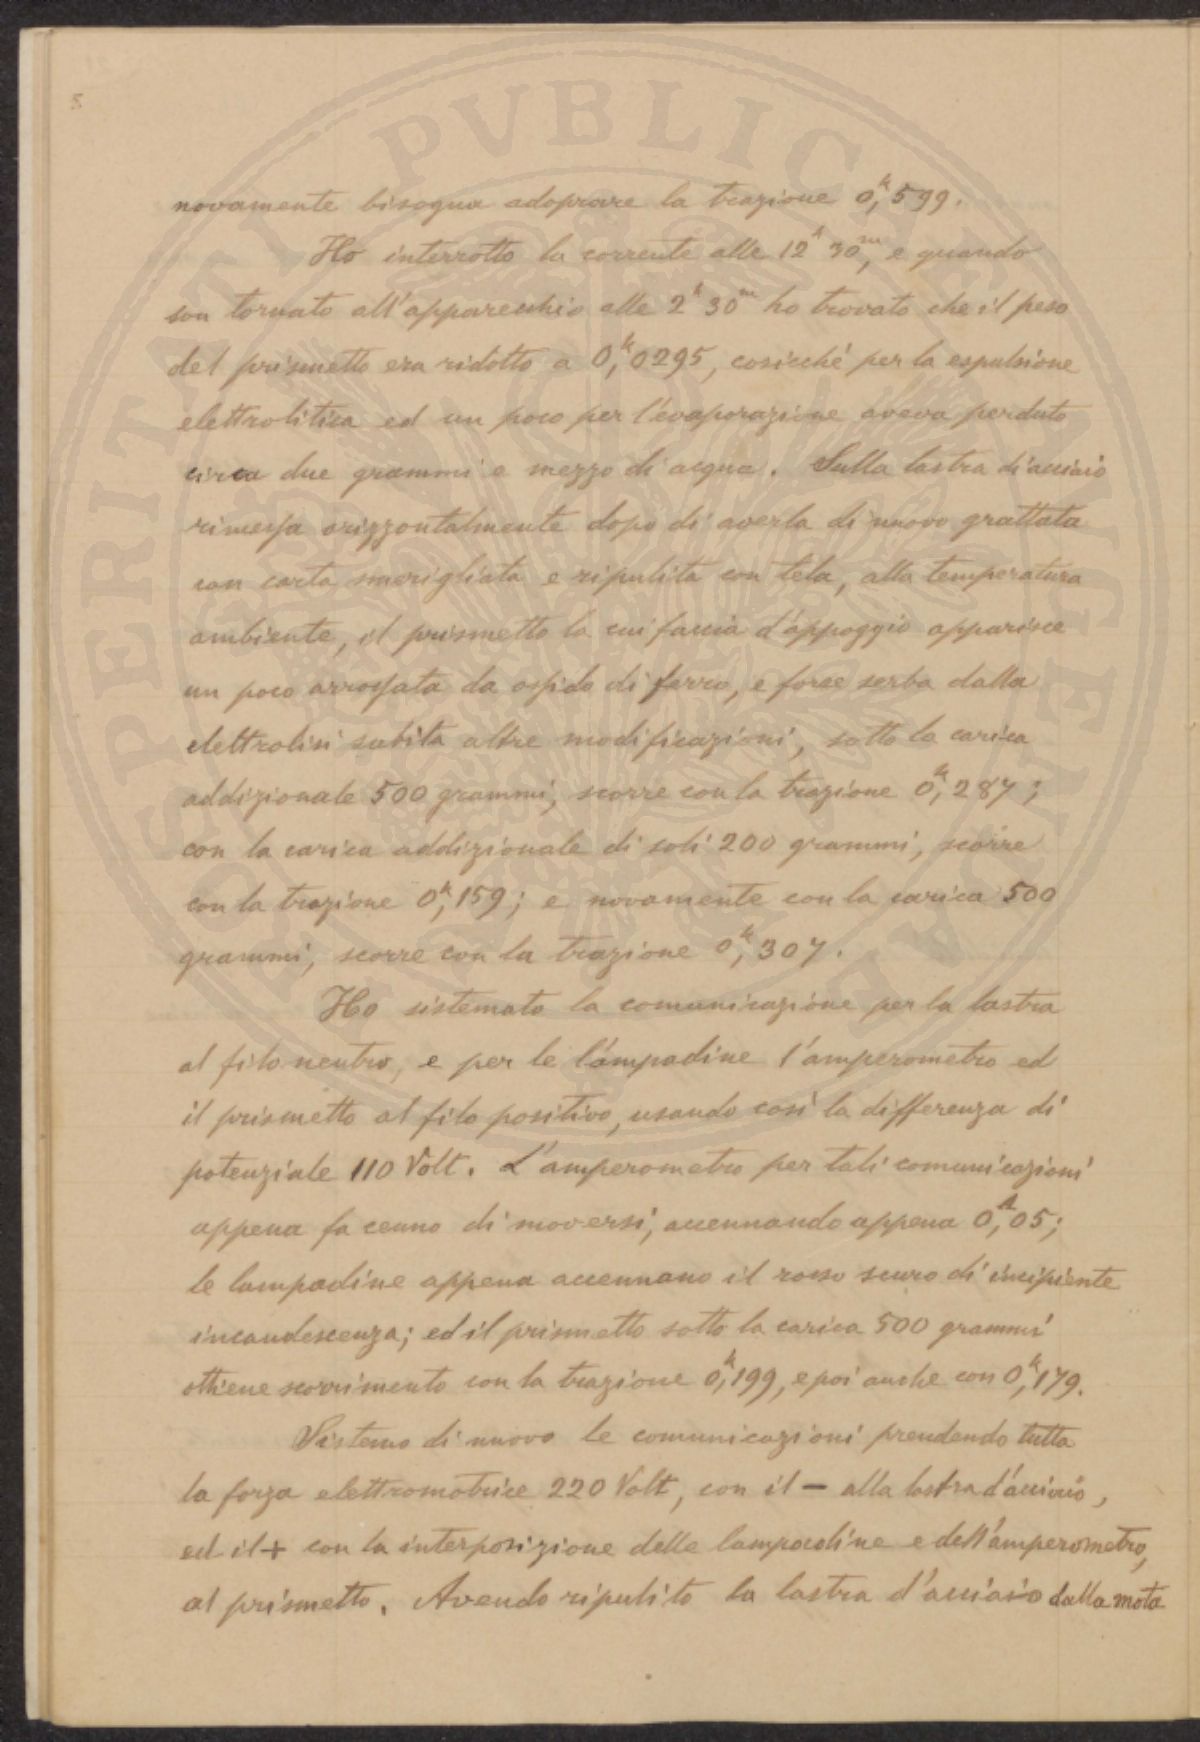 8
novamente bisogna adoprare la trazione 0,ᵏ599.
Ho interrotto la corrente alle 12ʰ 30ᵐ, e quando
son tornato all'apparecchio alle 2ʰ 30ᵐ ho trovato che il peso
del prismetto era ridotto a 0,ᵏ0295, cosicchè per la espulsione
elettrolitica ed un poco per l'evaporazione aveva perduto
circa due grammi e mezzo di acqua. Sulla lastra di acciaio
rimessa orizzontalmente dopo di averla di nuovo grattata
con carta smerigliata e ripulita con tela, alla temperatura
ambiente, il prismetto la cui faccia d'appoggio apparisce
un poco arrossata da ossido di ferro, e forse serba dalla
elettrolisi subita altre modificazioni, sotto la carica
addizionale 500 grammi, scorre con la trazione 0,ᵏ287;
con la carica addizionale di soli 200 grammi, scorre
con la trazione 0,ᵏ159; e novamente con la carica 500
grammi, scorre con la trazione 0,ᵏ307.
Ho sistemato la comunicazione per la lastra
al filo neutro, e per le lampadine l'amperometro ed
il prismetto al filo positivo, usando così la differenza di
potenziale 110 Volt. L'amperometro per tali comunicazioni
appena fa cenno di moversi, accennando appena 0,ᴬ05;
le lampadine appena accennano il rosso scuro di incipiente
incandescenza; ed il prismetto sotto la carica 500 grammi
ottiene scorrimento con la trazione 0,ᵏ199, e poi anche con 0,ᵏ179.
Sistemo di nuovo le comunicazioni prendendo tutta
la forza elettromotrice 220 Volt, con il − alla lastra d'acciaio,
ed il + con la interposizione delle lampadine e dell'amperometro,
al prismetto. Avendo ripulito la lastra d'acciaio dalla mota
PROSPERITATI PVBLICAE AVGENDAE